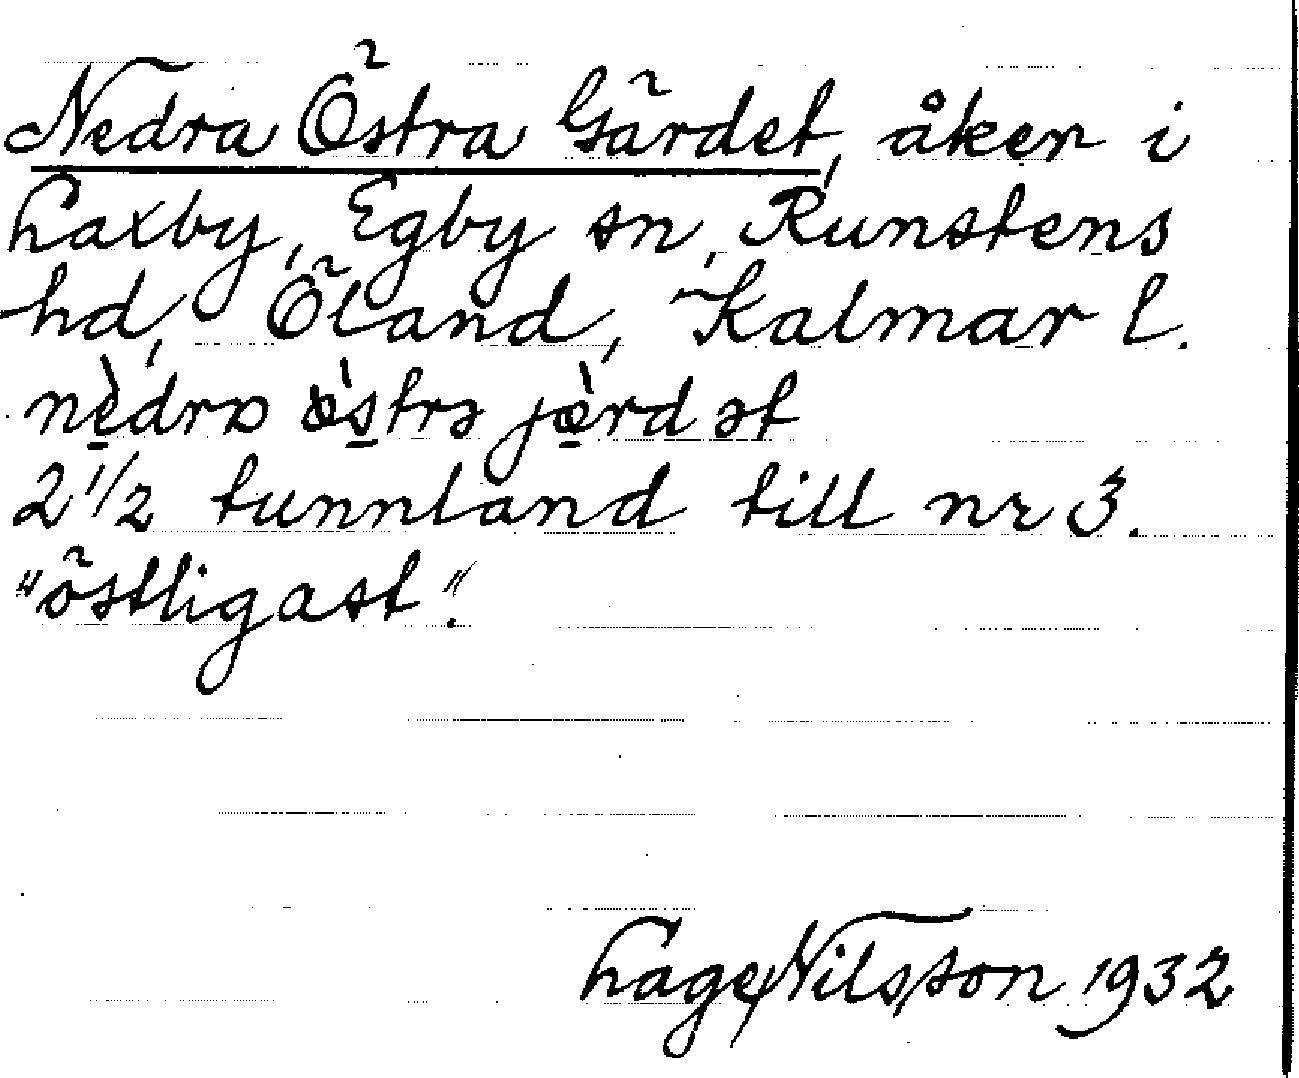 Nedra Östra Gärdet, åker i
Laxby, Egby sn, Runstens
hd, Öland, Kalmar l.
nèdra ö̀strə jæ̀rdət
2 1/2 tunnland till nr 3.
"östligast".
Lage Nilsson 1932